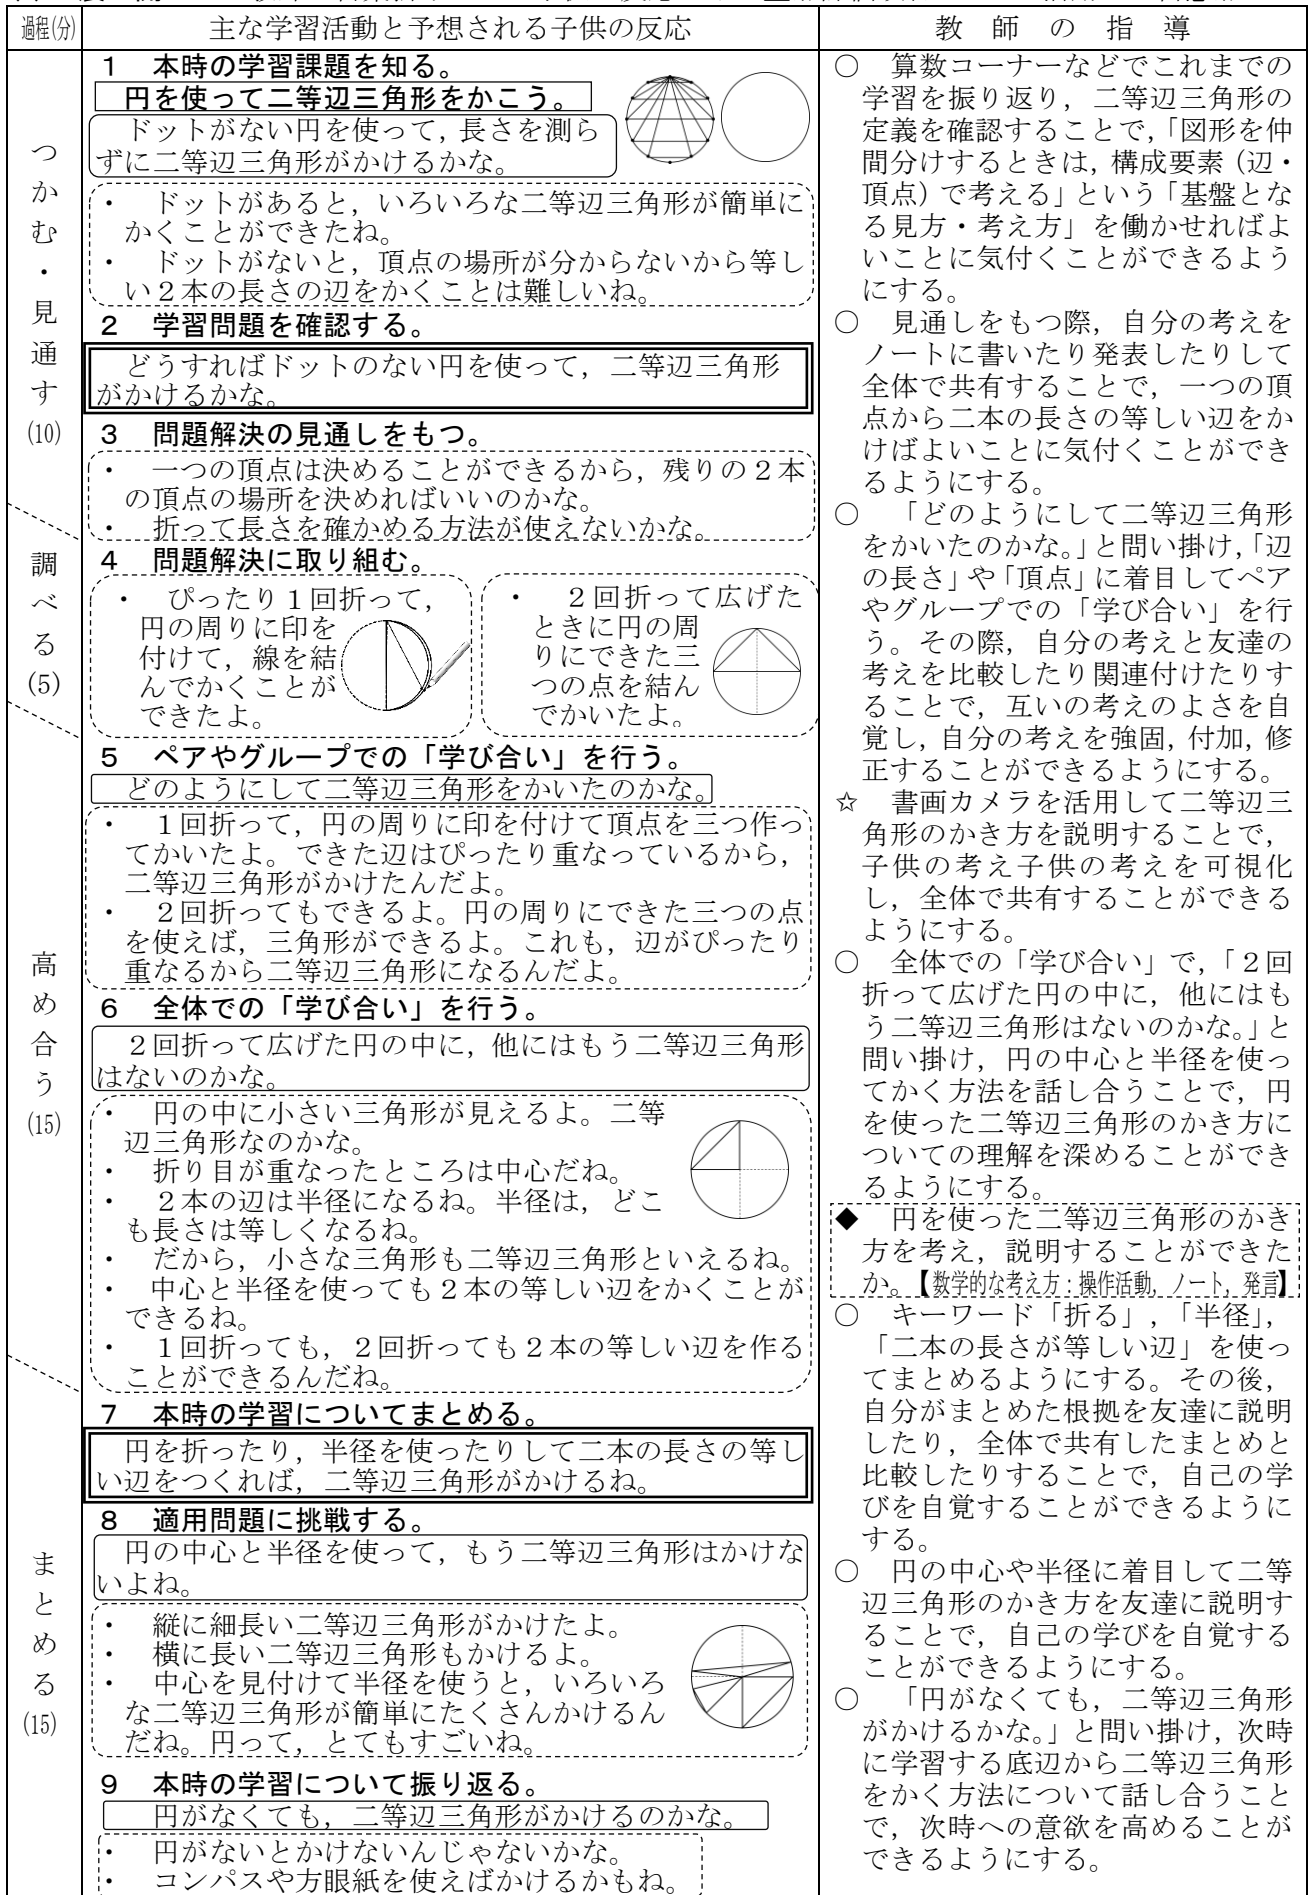 過程(分)
主な学習活動と予想される子供の反応
教師の指導
つかむ・見通す
(10)
調べる
(5)
高め合う
(15)
まとめる
(15)
1 本時の学習課題を知る。
円を使って二等辺三角形をかこう。
ドットがない円を使って,長さを測ら
ずに二等辺三角形がかけるかな。
・ ドットがあると,いろいろな二等辺三角形が簡単に
かくことができたね。
・ ドットがないと,頂点の場所が分からないから等し
い2本の長さの辺をかくことは難しいね。
2 学習問題を確認する。
どうすればドットのない円を使って,二等辺三角形
がかけるかな。
3 問題解決の見通しをもつ。
・ 一つの頂点は決めることができるから,残りの2本
の頂点の場所を決めればいいのかな。
・ 折って長さを確かめる方法が使えないかな。
4 問題解決に取り組む。
・ ぴったり1回折って,
円の周りに印を
付けて,線を結
んでかくことが
できたよ。
・ 2回折って広げた
ときに円の周
りにできた三
つの点を結ん
でかいたよ。
5 ペアやグループでの「学び合い」を行う。
どのようにして二等辺三角形をかいたのかな。
・ 1回折って,円の周りに印を付けて頂点を三つ作っ
てかいたよ。できた辺はぴったり重なっているから,
二等辺三角形がかけたんだよ。
・ 2回折ってもできるよ。円の周りにできた三つの点
を使えば,三角形ができるよ。これも,辺がぴったり
重なるから二等辺三角形になるんだよ。
6 全体での「学び合い」を行う。
2回折って広げた円の中に,他にはもう二等辺三角形
はないのかな。
・ 円の中に小さい三角形が見えるよ。二等
辺三角形なのかな。
・ 折り目が重なったところは中心だね。
・ 2本の辺は半径になるね。半径は,どこ
も長さは等しくなるね。
・ だから,小さな三角形も二等辺三角形といえるね。
・ 中心と半径を使っても2本の等しい辺をかくことが
できるね。
・ 1回折っても,2回折っても2本の等しい辺を作る
ことができるんだね。
7 本時の学習についてまとめる。
円を折ったり,半径を使ったりして二本の長さの等し
い辺をつくれば,二等辺三角形がかけるね。
8 適用問題に挑戦する。
円の中心と半径を使って,もう二等辺三角形はかけな
いよね。
・ 縦に細長い二等辺三角形がかけたよ。
・ 横に長い二等辺三角形もかけるよ。
・ 中心を見付けて半径を使うと,いろいろ
な二等辺三角形が簡単にたくさんかけるん
だね。円って,とてもすごいね。
9 本時の学習について振り返る。
円がなくても,二等辺三角形がかけるのかな。
・ 円がないとかけないんじゃないかな。
・ コンパスや方眼紙を使えばかけるかもね。
○ 算数コーナーなどでこれまでの
学習を振り返り,二等辺三角形の
定義を確認することで,「図形を仲
間分けするときは,構成要素(辺・
頂点)で考える」という「基盤とな
る見方・考え方」を働かせればよ
いことに気付くことができるよう
にする。
○ 見通しをもつ際,自分の考えを
ノートに書いたり発表したりして
全体で共有することで,一つの頂
点から二本の長さの等しい辺をか
けばよいことに気付くことができ
るようにする。
○ 「どのようにして二等辺三角形
をかいたのかな。」と問い掛け,「辺
の長さ」や「頂点」に着目してペア
やグループでの「学び合い」を行
う。その際,自分の考えと友達の
考えを比較したり関連付けたりす
ることで,互いの考えのよさを自
覚し,自分の考えを強固,付加,修
正することができるようにする。
☆ 書画カメラを活用して二等辺三
角形のかき方を説明することで,
子供の考え子供の考えを可視化
し,全体で共有することができる
ようにする。
○ 全体での「学び合い」で,「2回
折って広げた円の中に,他にはも
う二等辺三角形はないのかな。」と
問い掛け,円の中心と半径を使っ
てかく方法を話し合うことで,円
を使った二等辺三角形のかき方に
ついての理解を深めることができ
るようにする。
◆ 円を使った二等辺三角形のかき
方を考え,説明することができた
か。【数学的な考え方:操作活動,ノート,発言】
○ キーワード「折る」,「半径」,
「二本の長さが等しい辺」を使っ
てまとめるようにする。その後,
自分がまとめた根拠を友達に説明
したり,全体で共有したまとめと
比較したりすることで,自己の学
びを自覚することができるように
する。
○ 円の中心や半径に着目して二等
辺三角形のかき方を友達に説明す
ることで,自己の学びを自覚する
ことができるようにする。
○ 「円がなくても,二等辺三角形
がかけるかな。」と問い掛け,次時
に学習する底辺から二等辺三角形
をかく方法について話し合うこと
で,次時への意欲を高めることが
できるようにする。